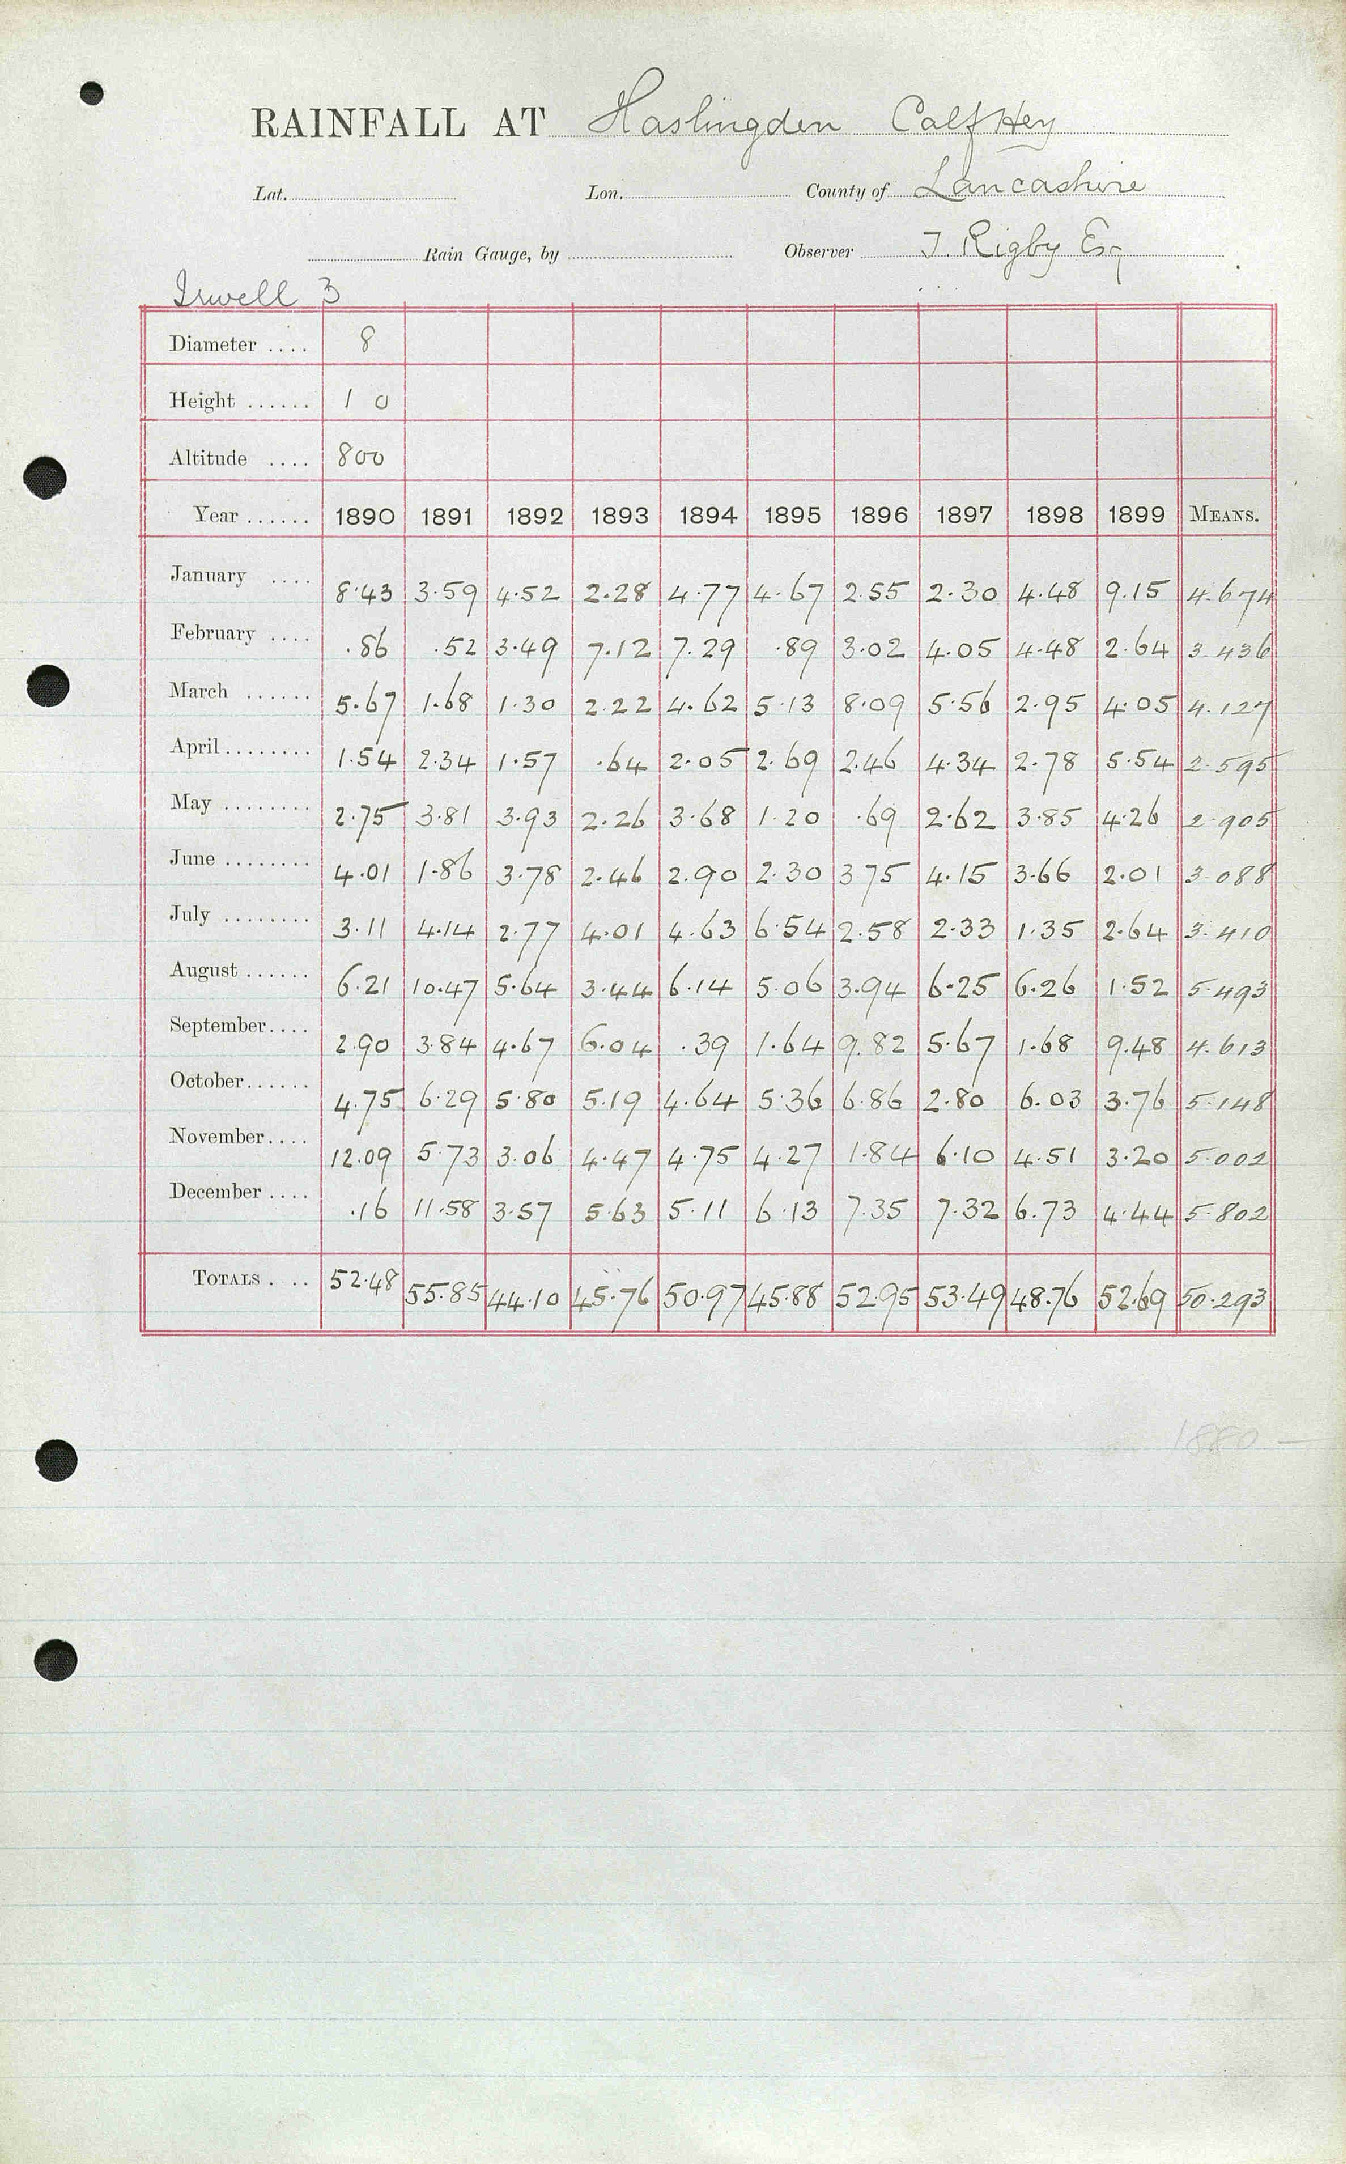 RAINFALL AT Haslingden Calf Hey
Lat. Lon. County of Lancashire
Rain Gauge, by Observer J. Rigby Esq
Irwell 3
Diameter .... 8
Height ...... 1 0
Altitude .... 800
Year ...... 1890 1891 1892 1893 1894 1895 1896 1897 1898 1899 MEANS.
January .... 8.43 3.59 4.52 2.28 4.77 4.67 2.55 2.30 4.48 9.15 4.674
February .... .86 .52 3.49 7.12 7.29 .89 3.02 4.05 4.48 2.64 3.436
March ...... 5.67 1.68 1.30 2.22 4.62 5.13 8.09 5.56 2.95 4.05 4.127
April ........ 1.54 2.34 1.57 .64 2.05 2.69 2.46 4.34 2.78 5.54 2.595
May ........ 2.75 3.81 3.93 2.26 3.68 1.20 .69 2.62 3.85 4.26 2.905
June ........ 4.01 1.86 3.78 2.46 2.90 2.30 3 75 4.15 3.66 2.01 3.088
July ........ 3.11 4.14 2.77 4.01 4.63 6.54 2.58 2.33 1.35 2.64 3.410
August ...... 6.21 10.47 5.64 3.44 6.14 5.06 3.94 6.25 6.26 1.52 5.493
September .... 2.90 3.84 4.67 6.04 .39 1.64 9.82 5.67 1.68 9.48 4.613
October ...... 4.75 6.29 5.80 5.19 4.64 5.36 6.86 2.80 6.03 3.76 5.148
November .... 12.09 5.73 3.06 4.47 4.75 4.27 1.84 6.10 4.51 3.20 5.002
December .... .16 11.58 3.57 5.63 5.11 6.13 7.35 7.32 6.73 4.44 5.802
TOTALS . .. 52.48 55.85 44.10 45.76 50.97 45.88 52.95 53.49 48.76 52.69 50.293
1880 —